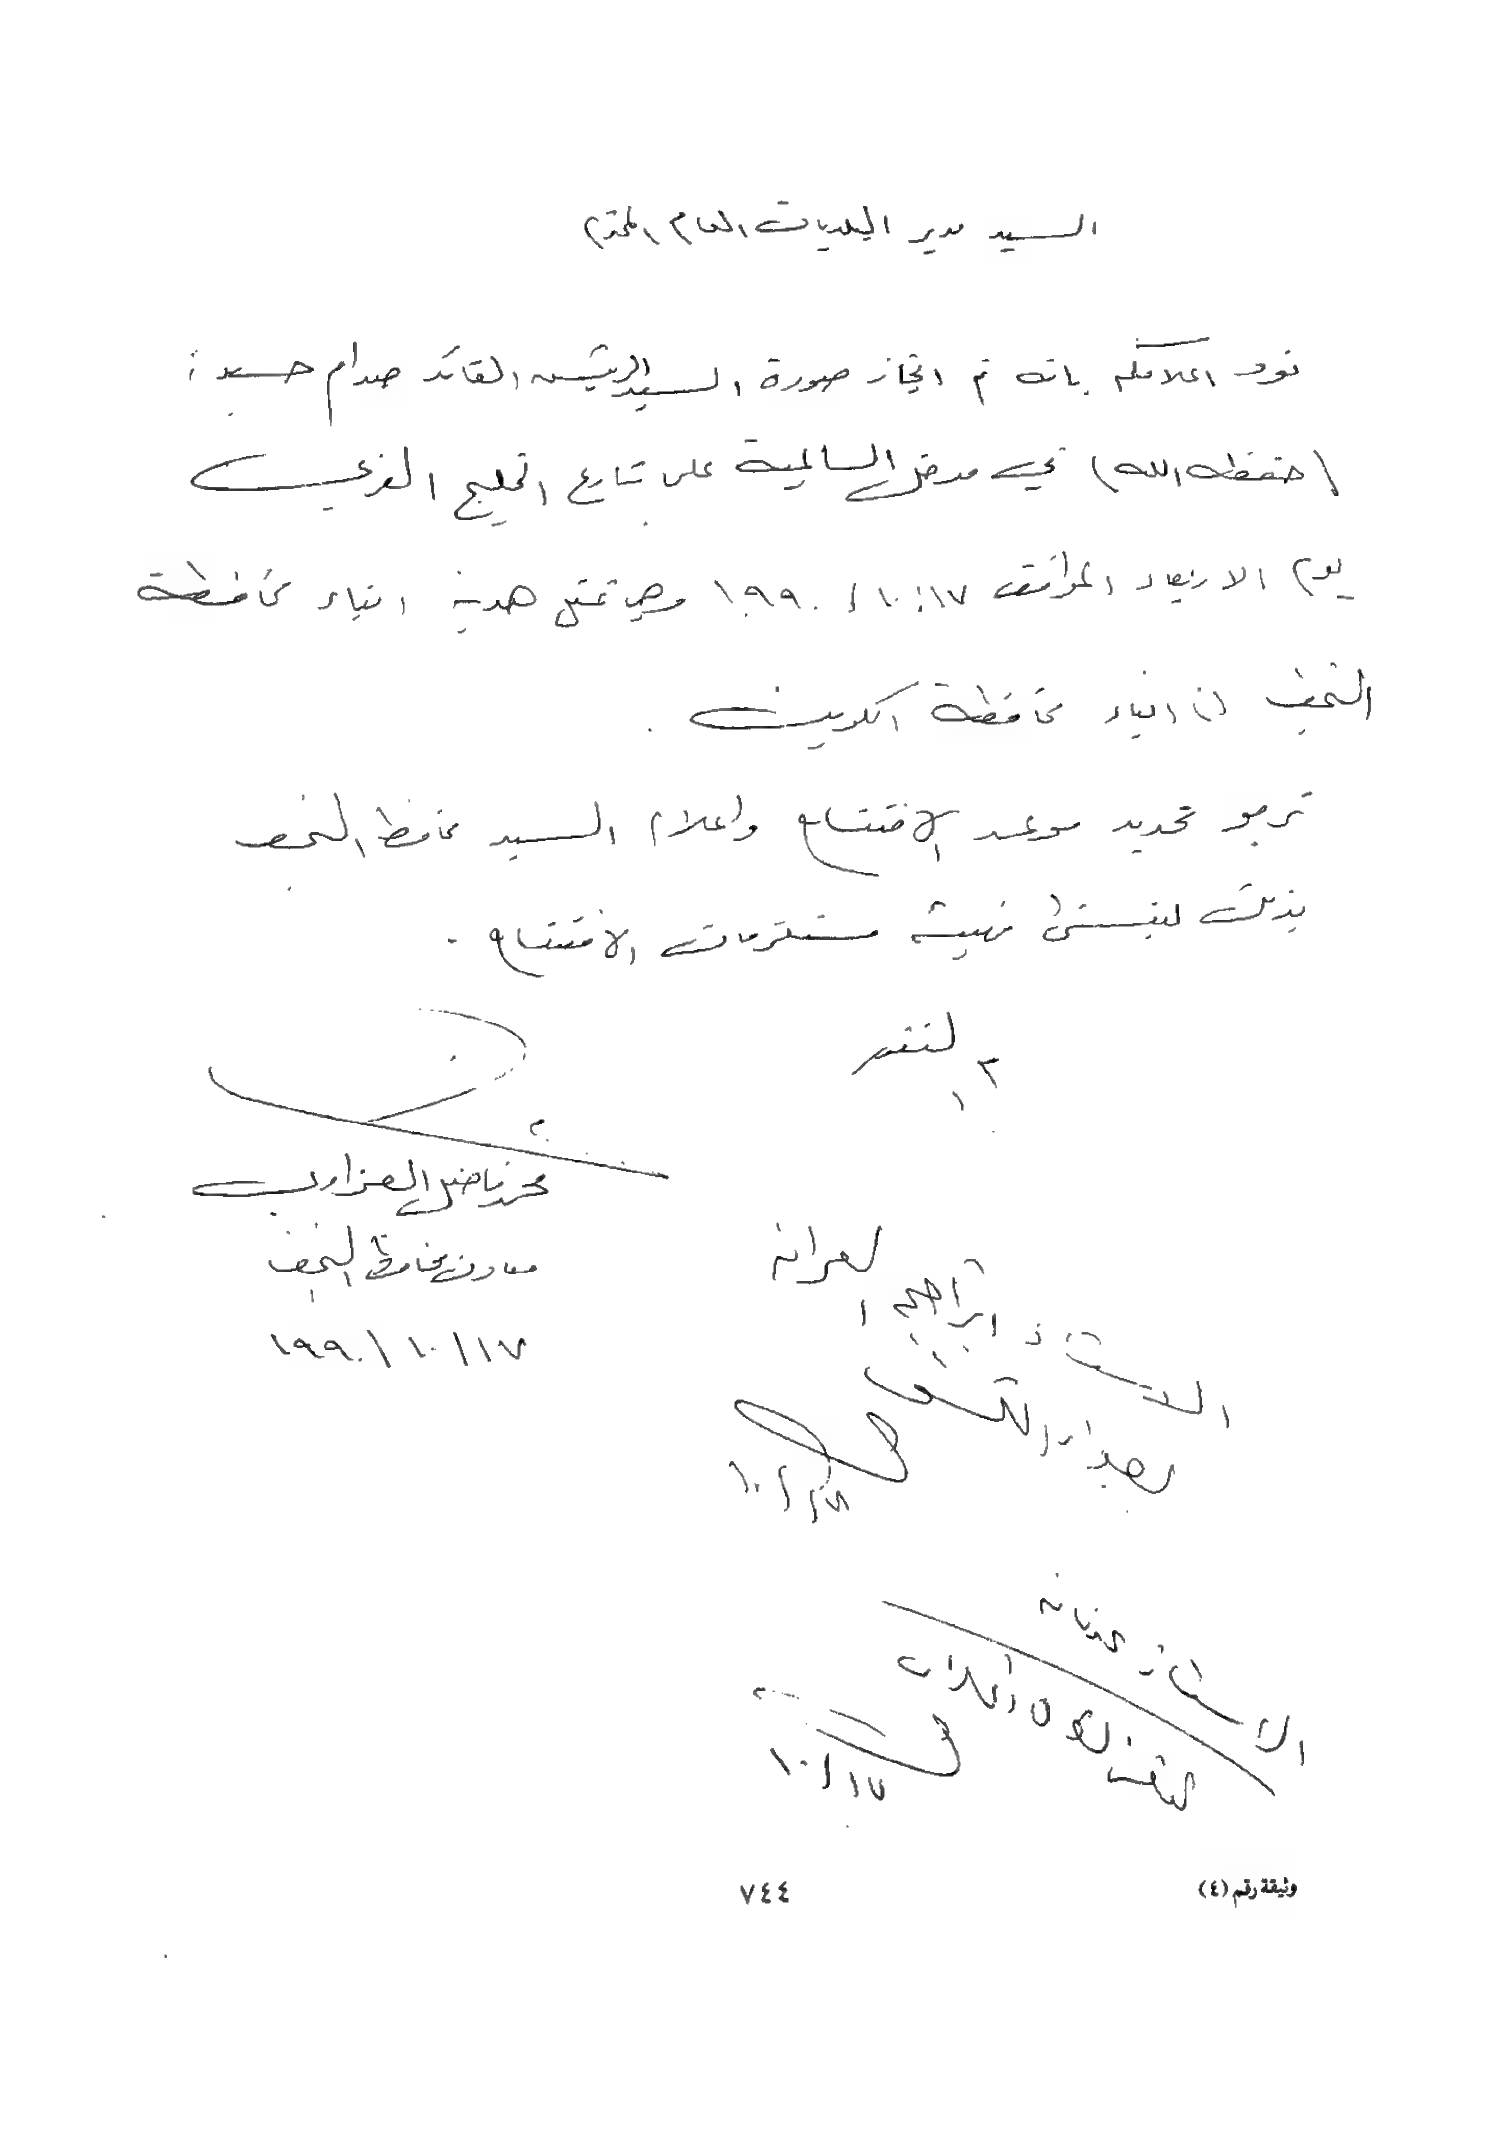 السيد مدير البلديات العام المحترم
نود اعلامكم بانه تم انجاز صورة السيد الرئيس القائد صدام حسين
(حفظه الله) في مدخل السالمية على شارع الخليج العربي
يوم الاربعاء الموافق ١٧/١٠/١٩٩٠ وهي تمثل هدية ابناء محافظة
النجف الى ابناء محافظة الكويت .
نرجو تحديد موعد الافتتاح واعلام السيد محافظ النجف
بذلك ليتسنى تهيئة مستلزمات الافتتاح .
محمد فاضل العزاوي
معاون محافظ النجف
١٧/١٠/١٩٩٠
الاستاذ ابراهيم
١٧/١٠
الاستاذ عدنان
١٧/١٠
وثيقة رقم (٤)
٧٤٤